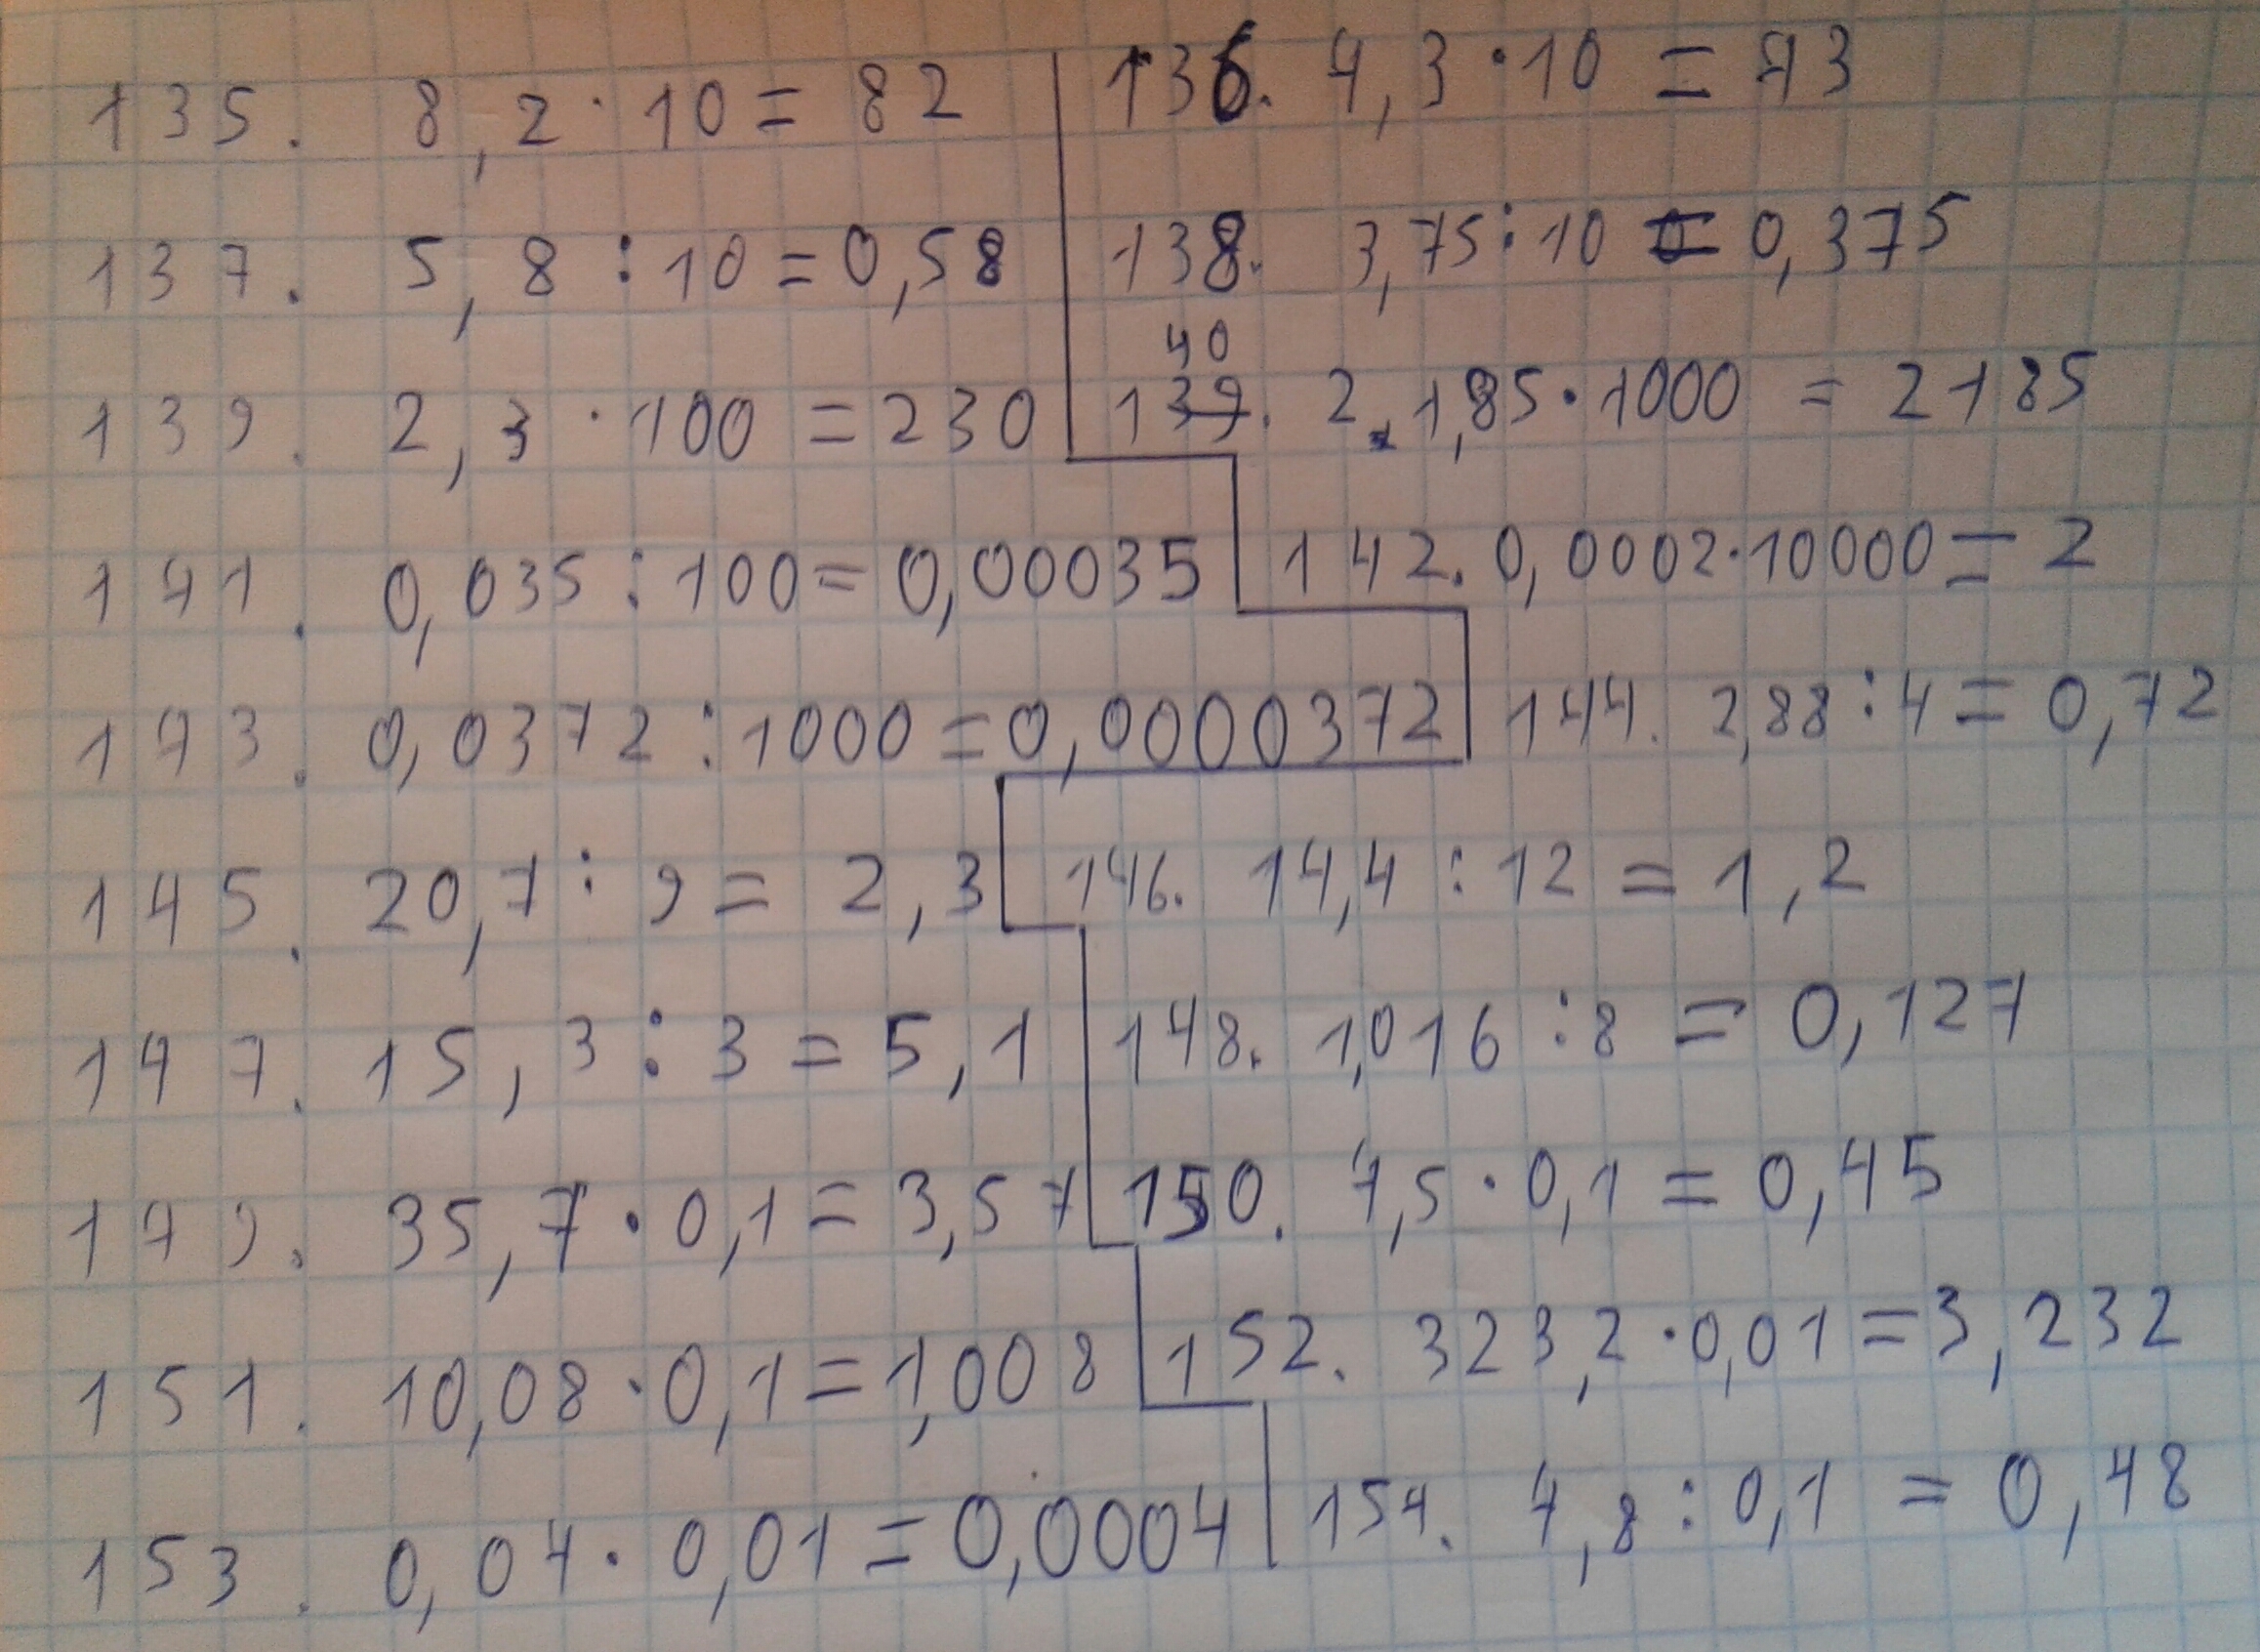 135. 8,2 · 10 = 82
136. 4,3 · 10 = 43
137. 5,8 : 10 = 0,58
138. 3,75 : 10 = 0,375
139. 2,3 · 100 = 230
40
139. 2,1,85 · 1000 = 2185
141. 0,035 : 100 = 0,00035
142. 0,0002 · 10000 = 2
143. 0,0372 : 1000 = 0,0000372
144. 2,88 : 4 = 0,72
145. 20,7 : 9 = 2,3
146. 14,4 : 12 = 1,2
147. 15,3 : 3 = 5,1
148. 1,016 : 8 = 0,127
149. 35,7 · 0,1 = 3,57
150. 4,5 · 0,1 = 0,45
151. 10,08 · 0,1 = 1,008
152. 323,2 · 0,01 = 3,232
153. 0,04 · 0,01 = 0,0004
154. 4,8 : 0,1 = 0,48